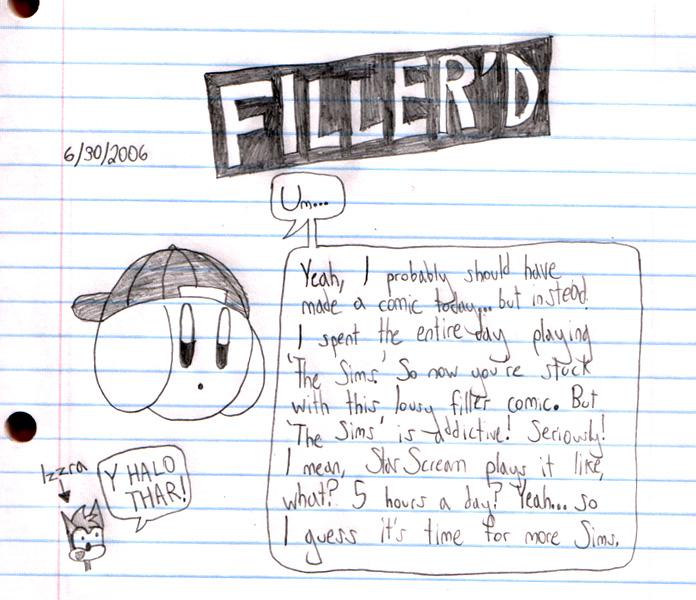 FILLER'D
6/30/2006
Um...
Yeah, I probably should have
made a comic today... but instead
I spent the entire day playing
'The Sims.' So now you're stuck
with this lousy filler comic. But
'The Sims' is addictive! Seriously!
I mean, StarScream plays it like,
what? 5 hours a day? Yeah... so
I guess it's time for more Sims.
Izzra
Y HALO
THAR!